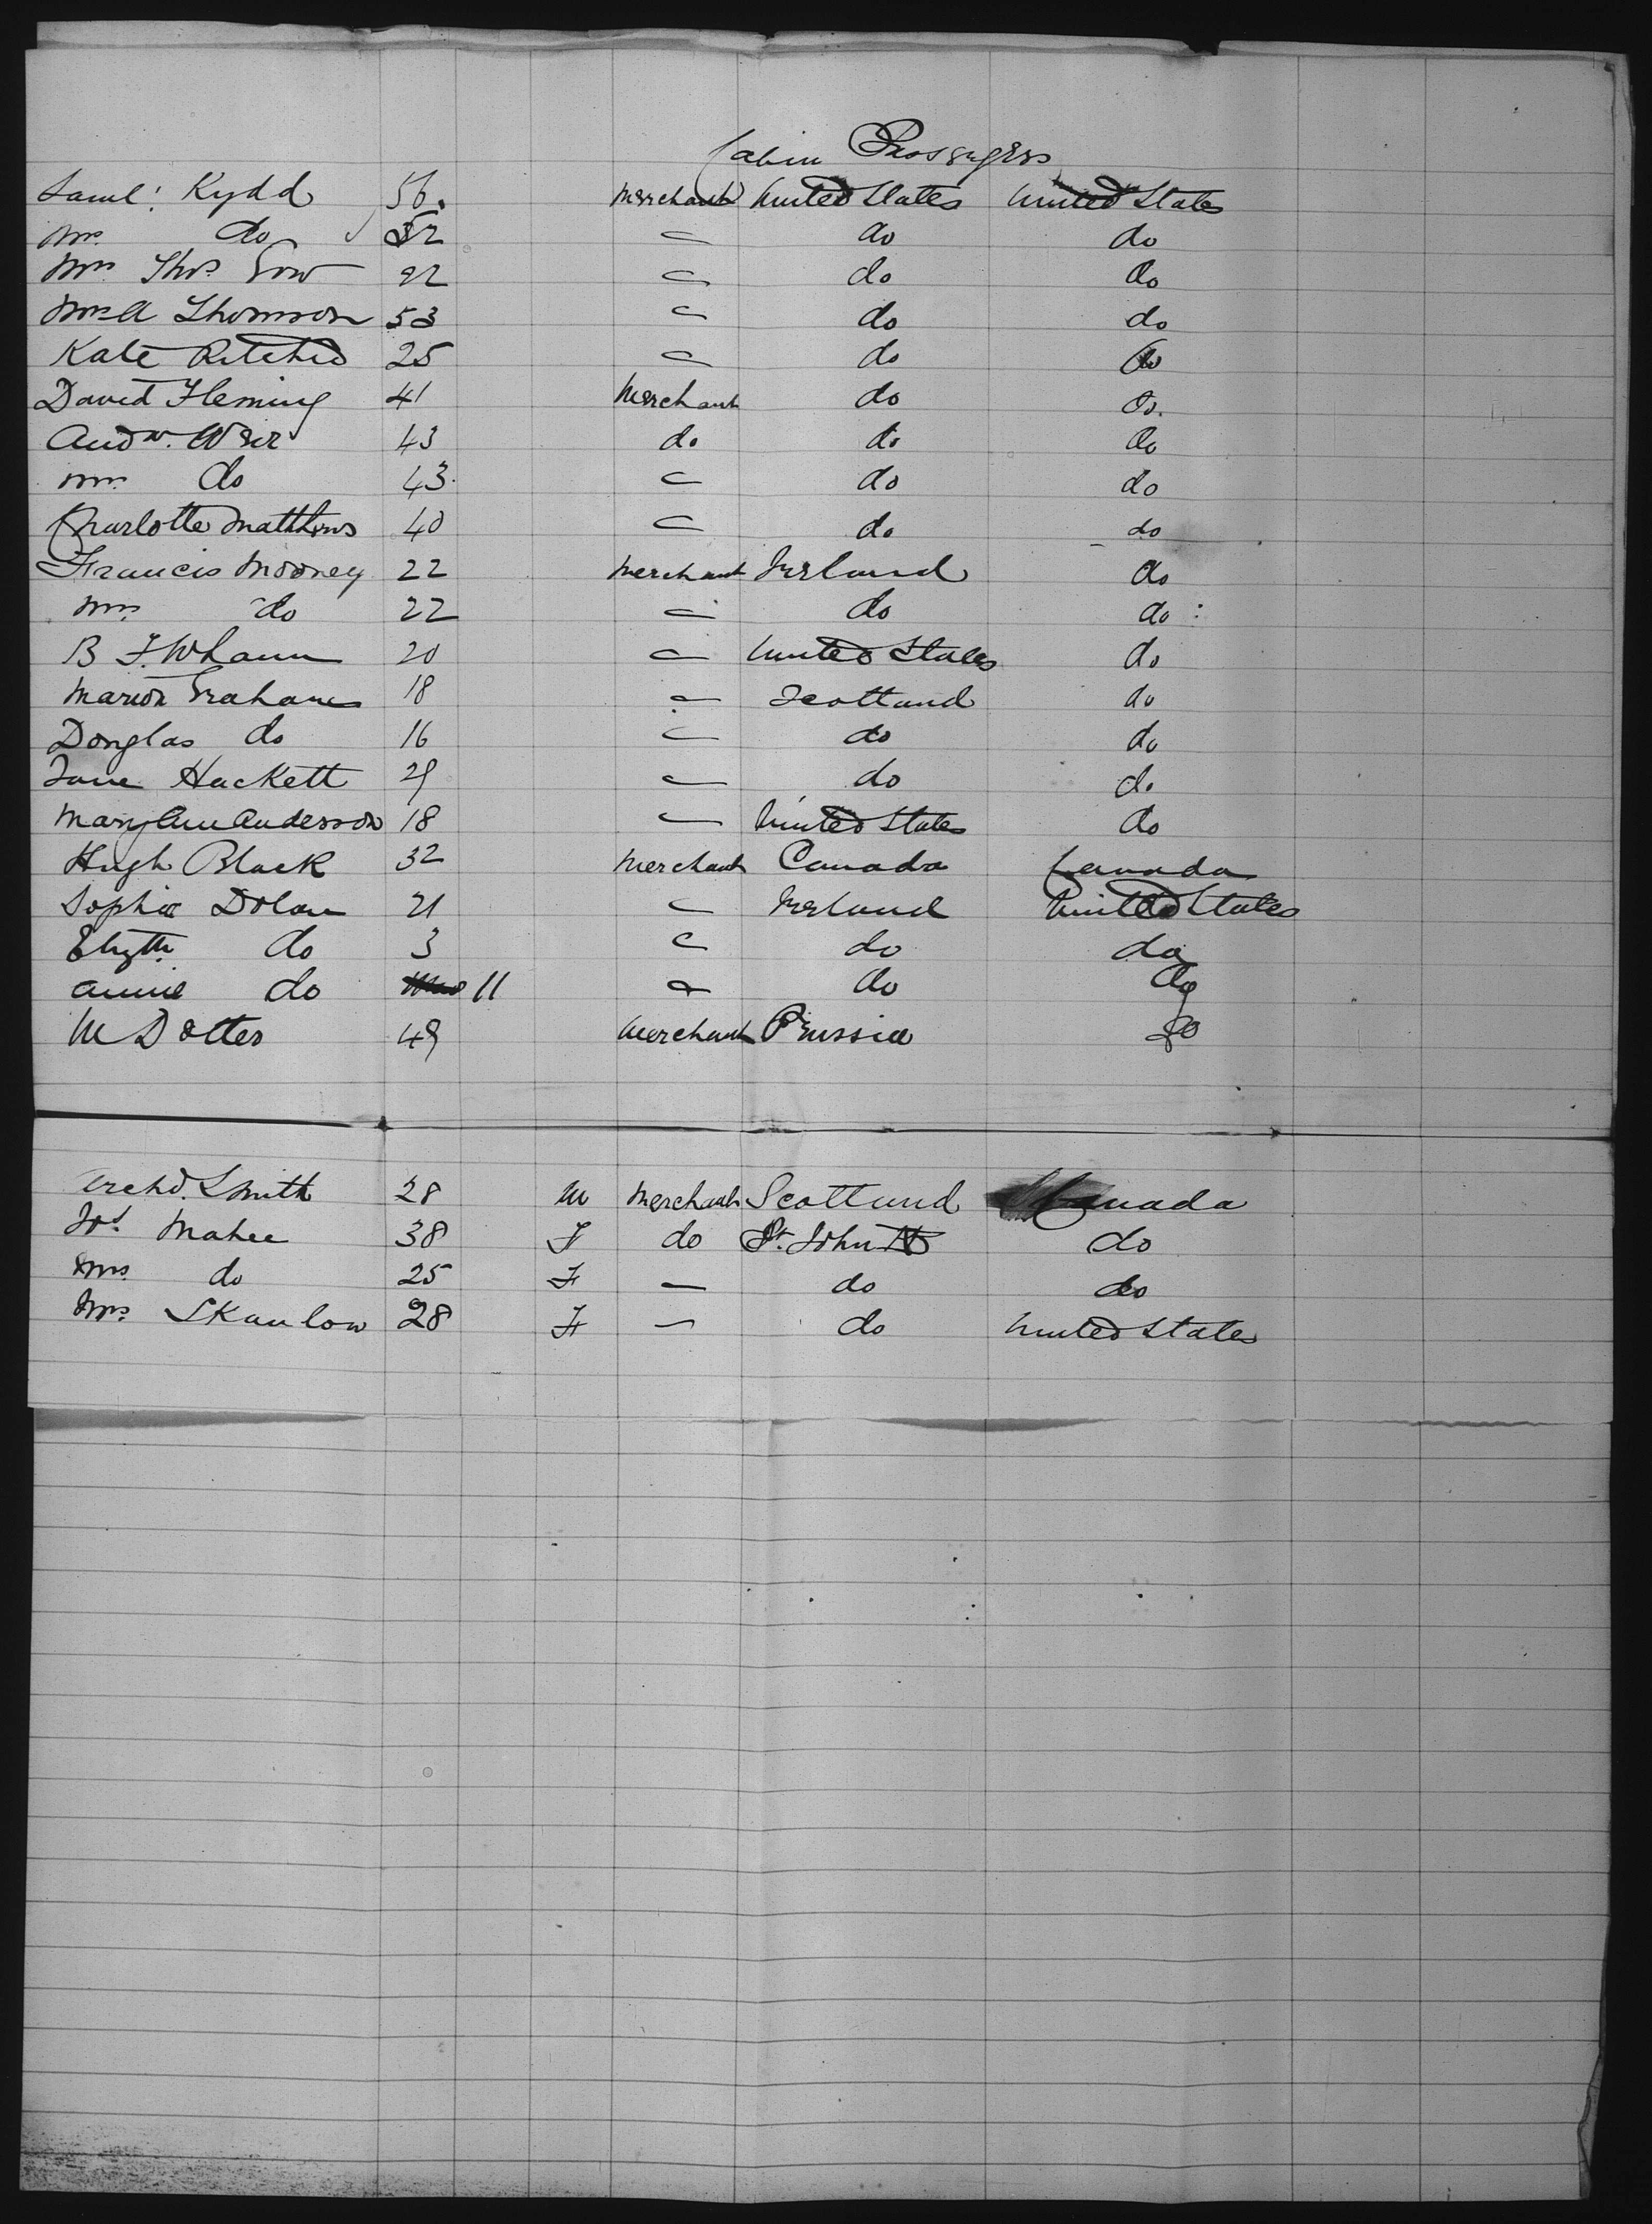 Cabin Passengers
Saml. Kydd 56. Merchant United States United States
Mrs. do 52 — do do
Mrs. Thos. Gow 22 — do do
Mrs A Thomson 53 — do do
Kate Ritchie 25 — do do
David Fleming 41 Merchant do do.
Andw. Weir 43 do do do
Mrs. do 43. — do do
Charlotte Matthews 40 — do do
Francis Mooney 22 Merchant Ireland do
Mrs. do 22 — do do
B F. Whann 20 — United States do
Marion Grahame 18 — Scottland do
Douglas do 16 — do do
Jane Hackett 29 — do do
Mary Ann Anderson 18 — United States do
Hugh Black 32 Merchant Canada Canada
Sophia Dolan 21 — Ireland United States
Elizth. do 3 — do do
Annie do 11 — do do
M Dotter 49 Merchant Prussia do
Archd. Smith 28 M Merchant Scottland Canada
Mahee 38 F do St. John NB do
Mrs. do 25 F — do do
Mrs. Skanlow 28 F — do United States